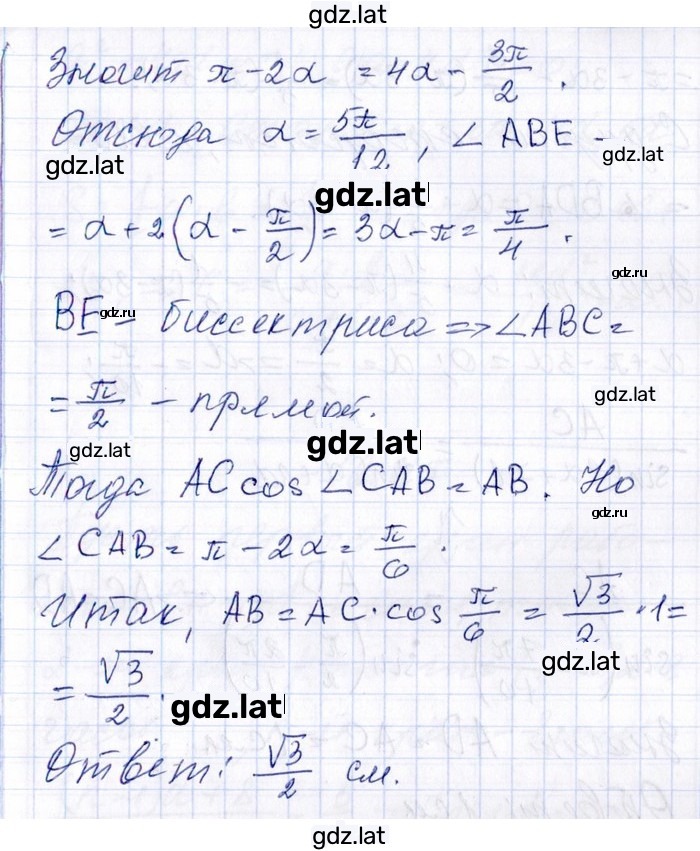 gdz.lat
Значит π - 2α = 4α - 3π/2 .
Отсюда α = 5π/12 , ∠ ABE -
gdz.lat
gdz.lat
= α + 2(α - π/2) = 3α - π = π/4 .
gdz.lat
gdz.ru
BE - биссектриса => ∠ABC =
gdz.ru
gdz.lat
= π/2 - прямой.
gdz.lat
gdz.lat
Тогда AC cos ∠ CAB = AB . Но
gdz.ru
∠ CAB = π - 2α = π/6 .
gdz.lat
Итак, AB = AC · cos π/6 = √3/2 · 1 =
gdz.lat
= √3/2 .
gdz.lat
Ответ: √3/2 см.
gdz.lat